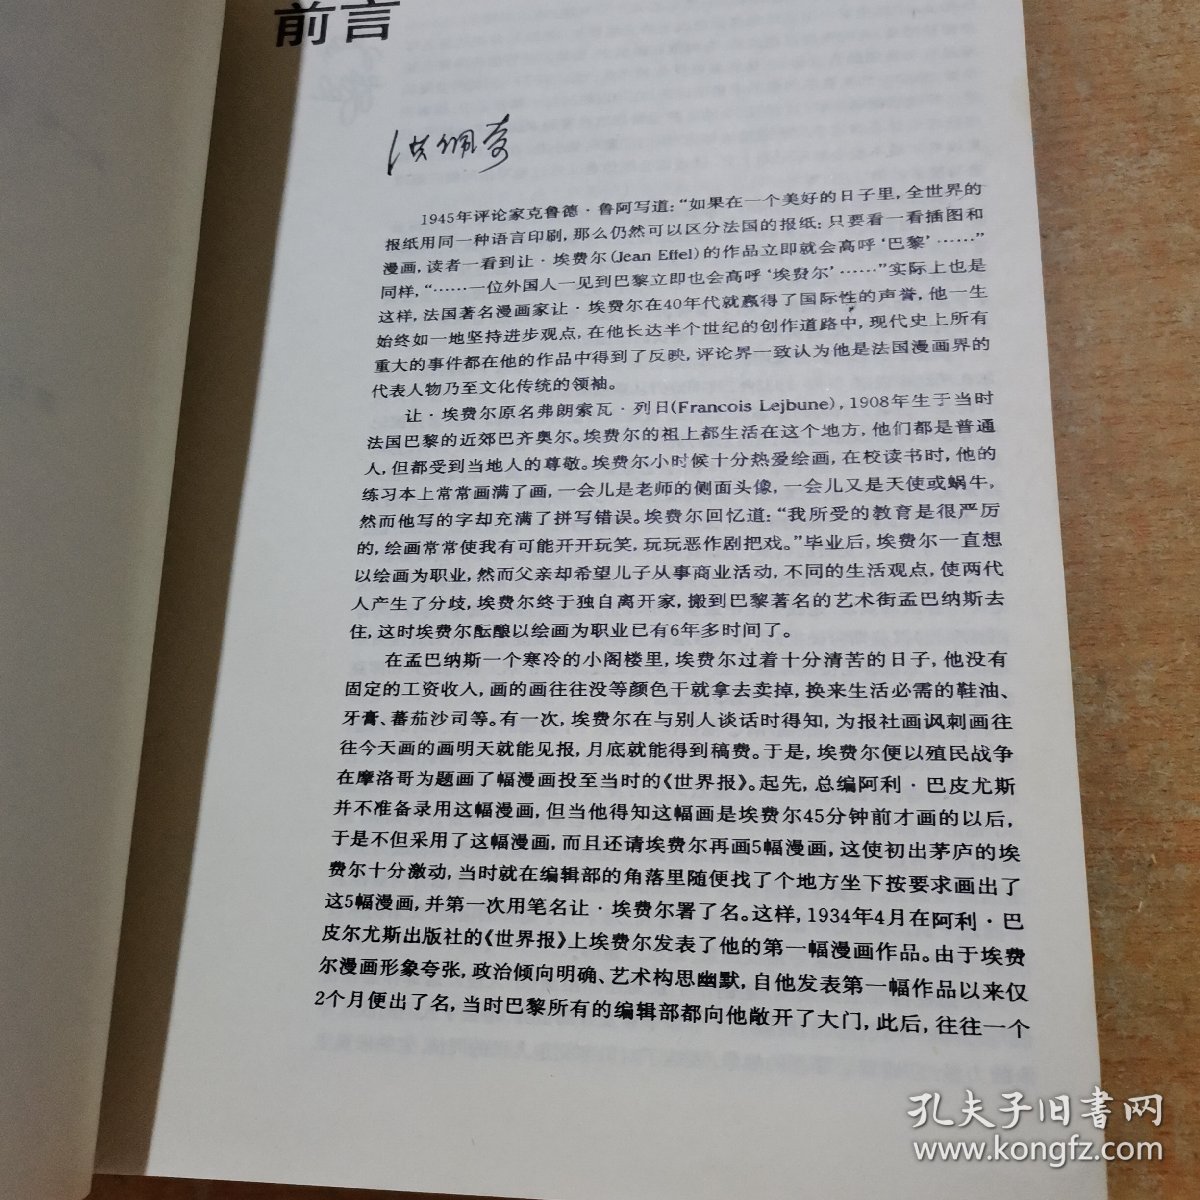 前言
洪佩奇
1945年评论家克鲁德·鲁阿写道：“如果在一个美好的日子里，全世界的
报纸用同一种语言印刷，那么仍然可以区分法国的报纸：只要看一看插图和
漫画，读者一看到让·埃费尔(Jean Effel)的作品立即就会高呼‘巴黎’……”
同样，“……一位外国人一见到巴黎立即也会高呼‘埃费尔’……”实际上也是
这样，法国著名漫画家让·埃费尔在40年代就赢得了国际性的声誉，他一生
始终如一地坚持进步观点，在他长达半个世纪的创作道路中，现代史上所有
重大的事件都在他的作品中得到了反映，评论界一致认为他是法国漫画界的
代表人物乃至文化传统的领袖。
让·埃费尔原名弗朗索瓦·列日(Francois Lejbune)，1908年生于当时
法国巴黎的近郊巴齐奥尔。埃费尔的祖上都生活在这个地方，他们都是普通
人，但都受到当地人的尊敬。埃费尔小时候十分热爱绘画，在校读书时，他的
练习本上常常画满了画，一会儿是老师的侧面头像，一会儿又是天使或蜗牛，
然而他写的字却充满了拼写错误。埃费尔回忆道：“我所受的教育是很严厉
的，绘画常常使我有可能开开玩笑，玩玩恶作剧把戏。”毕业后，埃费尔一直想
以绘画为职业，然而父亲却希望儿子从事商业活动，不同的生活观点，使两代
人产生了分歧，埃费尔终于独自离开家，搬到巴黎著名的艺术街孟巴纳斯去
住，这时埃费尔酝酿以绘画为职业已有6年多时间了。
在孟巴纳斯一个寒冷的小阁楼里，埃费尔过着十分清苦的日子，他没有
固定的工资收人，画的画往往没等颜色干就拿去卖掉，换来生活必需的鞋油、
牙膏、蕃茄沙司等。有一次，埃费尔在与别人谈话时得知，为报社画讽刺画往
往今天画的画明天就能见报，月底就能得到稿费。于是，埃费尔便以殖民战争
在摩洛哥为题画了幅漫画投至当时的《世界报》。起先，总编阿利·巴皮尤斯
并不准备录用这幅漫画，但当他得知这幅画是埃费尔45分钟前才画的以后，
于是不但采用了这幅漫画，而且还请埃费尔再画5幅漫画，这使初出茅庐的埃
费尔十分激动，当时就在编辑部的角落里随便找了个地方坐下按要求画出了
这5幅漫画，并第一次用笔名让·埃费尔署了名。这样，1934年4月在阿利·巴
皮尔尤斯出版社的《世界报》上埃费尔发表了他的第一幅漫画作品。由于埃费
尔漫画形象夸张，政治倾向明确、艺术构思幽默，自他发表第一幅作品以来仅
2个月便出了名，当时巴黎所有的编辑部都向他敞开了大门，此后，往往一个
孔夫子旧书网
www.kongfz.com